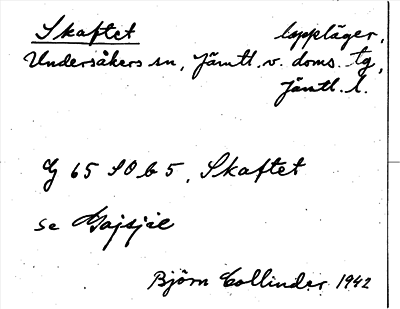 Skaftet lappläger,
Undersåkers sn, Jämtl. v. doms. tg,
Jämtl. l.
G 65 SO b 5, Skaftet
se
Björn Collinder 1942